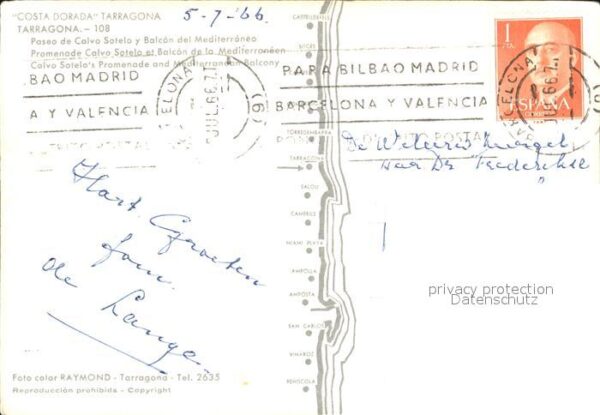 "COSTA DORADA" TARRAGONA
5-7-'66
TARRAGONA. - 108
Paseo de Calvo Sotelo y Balcón del Mediterráneo
Promenade Calvo Sotelo et Balcón de la Mediterranéen
Calvo Sotelo's Promenade and Mediterranean Balcony
BAO MADRID
A Y VALENCIA
DISTRITO POSTAL
ELONA
JUL.66
(6)
PARA BILBAO MADRID
BARCELONA Y VALENCIA
DISTRITO POSTAL
BARCELONA
JUL.66
(6)
1
PTA
ESPAÑA
CORREOS
CASTELLDEFELS
SITGES
TORREDEMBARRA
TARRAGONA
SALOU
CAMBRILS
MIAMI PLAYA
AMPOLLA
AMPOSTA
SAN CARLOS
VINAROZ
PEÑISCOLA
De
Hart Groeten
fam.
de Lange.
privacy protection
Datenschutz
Foto color RAYMOND - Tarragona - Tel. 2635
Reproducción prohibida - Copyright